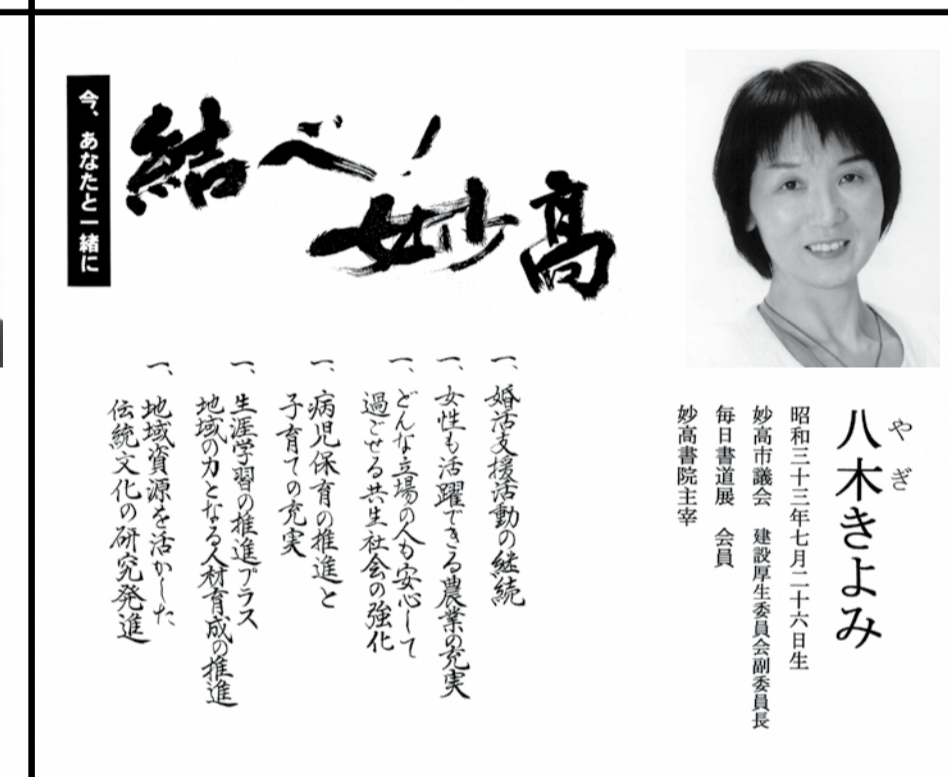 やぎ
八木きよみ
昭和三十三年七月二十六日生
妙高市議会 建設厚生委員会副委員長
毎日書道展 会員
妙高書院主宰
結べ!
妙高
今、あなたと一緒に
一、婚活支援活動の継続
一、女性も活躍できる農業の充実
一、どんな立場の人も安心して
過ごせる共生社会の強化
一、病児保育の推進と
子育ての充実
一、生涯学習の推進プラス
地域の力となる人材育成の推進
一、地域資源を活かした
伝統文化の研究発進